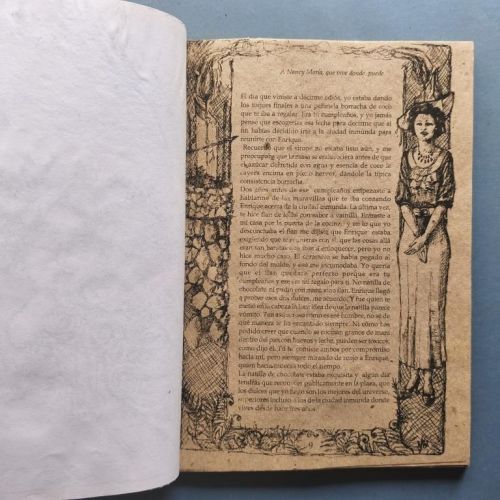 A Nancy María, que vive donde puede
El día que viniste a decirme adiós, yo estaba dando
los toques finales a una panetela borracha de coco
que te iba a regalar. Era tu cumpleaños, y yo jamás
pensé que escogerías esa fecha para decirme que al
fin habías decidido irte a la ciudad inmunda para
reunirte con Enrique.
Recuerdo que el sirope no estaba listo aún, y me
preocupaba que
antes de que
con agua y esencia de coco le
cayera encima en pleno hervor, dándole la típica
consistencia borracha.
Dos años antes de ese cumpleaños empezaste a
hablarme de las maravillas que te iba contando
Enrique acerca de la ciudad inmunda. La última vez,
te hice flan de leche con sabor a vainilla. Entraste a
mi casa por la puerta de la cocina, y en lo que yo
desconchaba el flan me dijiste que Enrique estaba
exigiendo que te reunieras con él, que las cosas allá
eran tan baratas que ibas a enloquecer, pero yo no
hice mucho caso. El caramelo se había pegado al
fondo del molde, y eso me incomodaba. Yo quería
que el flan quedara perfecto porque era tu
cumpleaños y ese era mi regalo para ti. No natilla de
chocolate ni pudín con maní, sino flan. Enrique llegó
a probar esos dos dulces, me acuerdo. Y fue quien te
metió en la cabeza la idea de que la natilla parece
vómito. Tan asqueroso como es ese hombre, no sé de
qué manera te ha encantado siempre. Ni cómo has
podido creer que cuando se cocinan granos de maní
dentro del pan con huevos y leche, pueden ser tóxicos,
como dijo él. Tú te comiste ambos por compromiso
hacia mí, pero siempre mirando de reojo a Enrique,
quien hacía muecas todo el tiempo.
La natilla de chocolate estaba exquisita y algún día
tendrás que reconocer públicamente en la plaza, que
los dulces que yo hago son los mejores del universo,
superiores incluso a los de la ciudad inmunda donde
vives desde hace tres años.
9